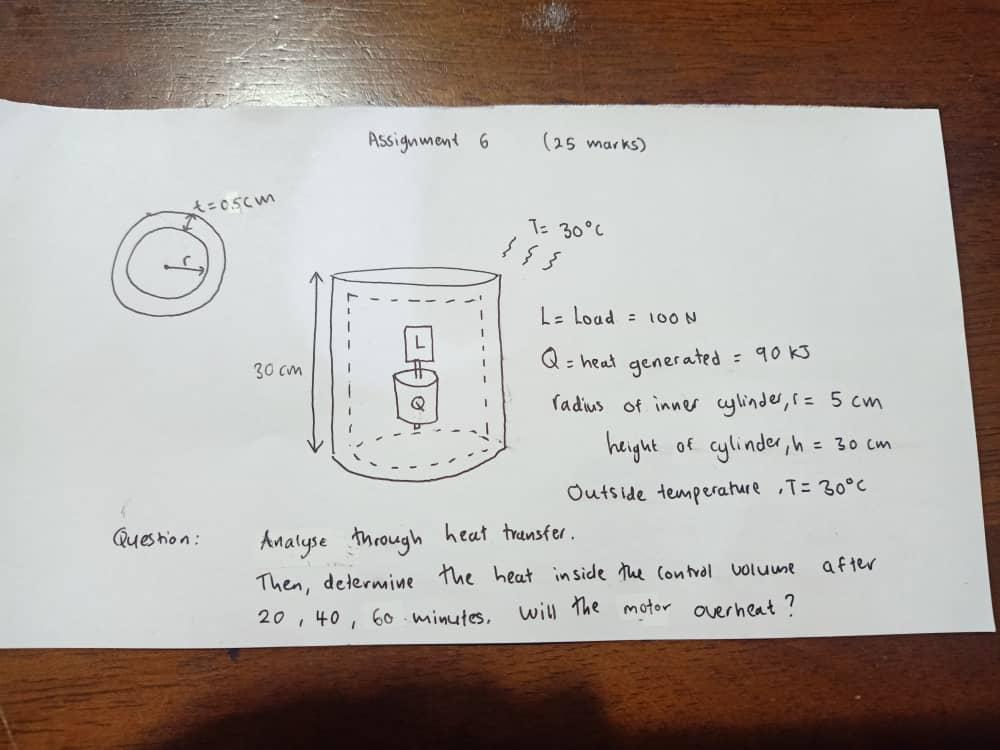 Assignment 6 (25 marks)
t=0.5cm
r
T= 30°C
30 cm
L
Q
L= Load = 100 N
Q = heat generated = 90 kJ
radius of inner cylinder, r = 5 cm
height of cylinder, h = 30 cm
Outside temperature, T= 30°C
Question: Analyse through heat transfer.
Then, determine the heat inside the control volume after
20, 40, 60 minutes. Will the motor overheat?